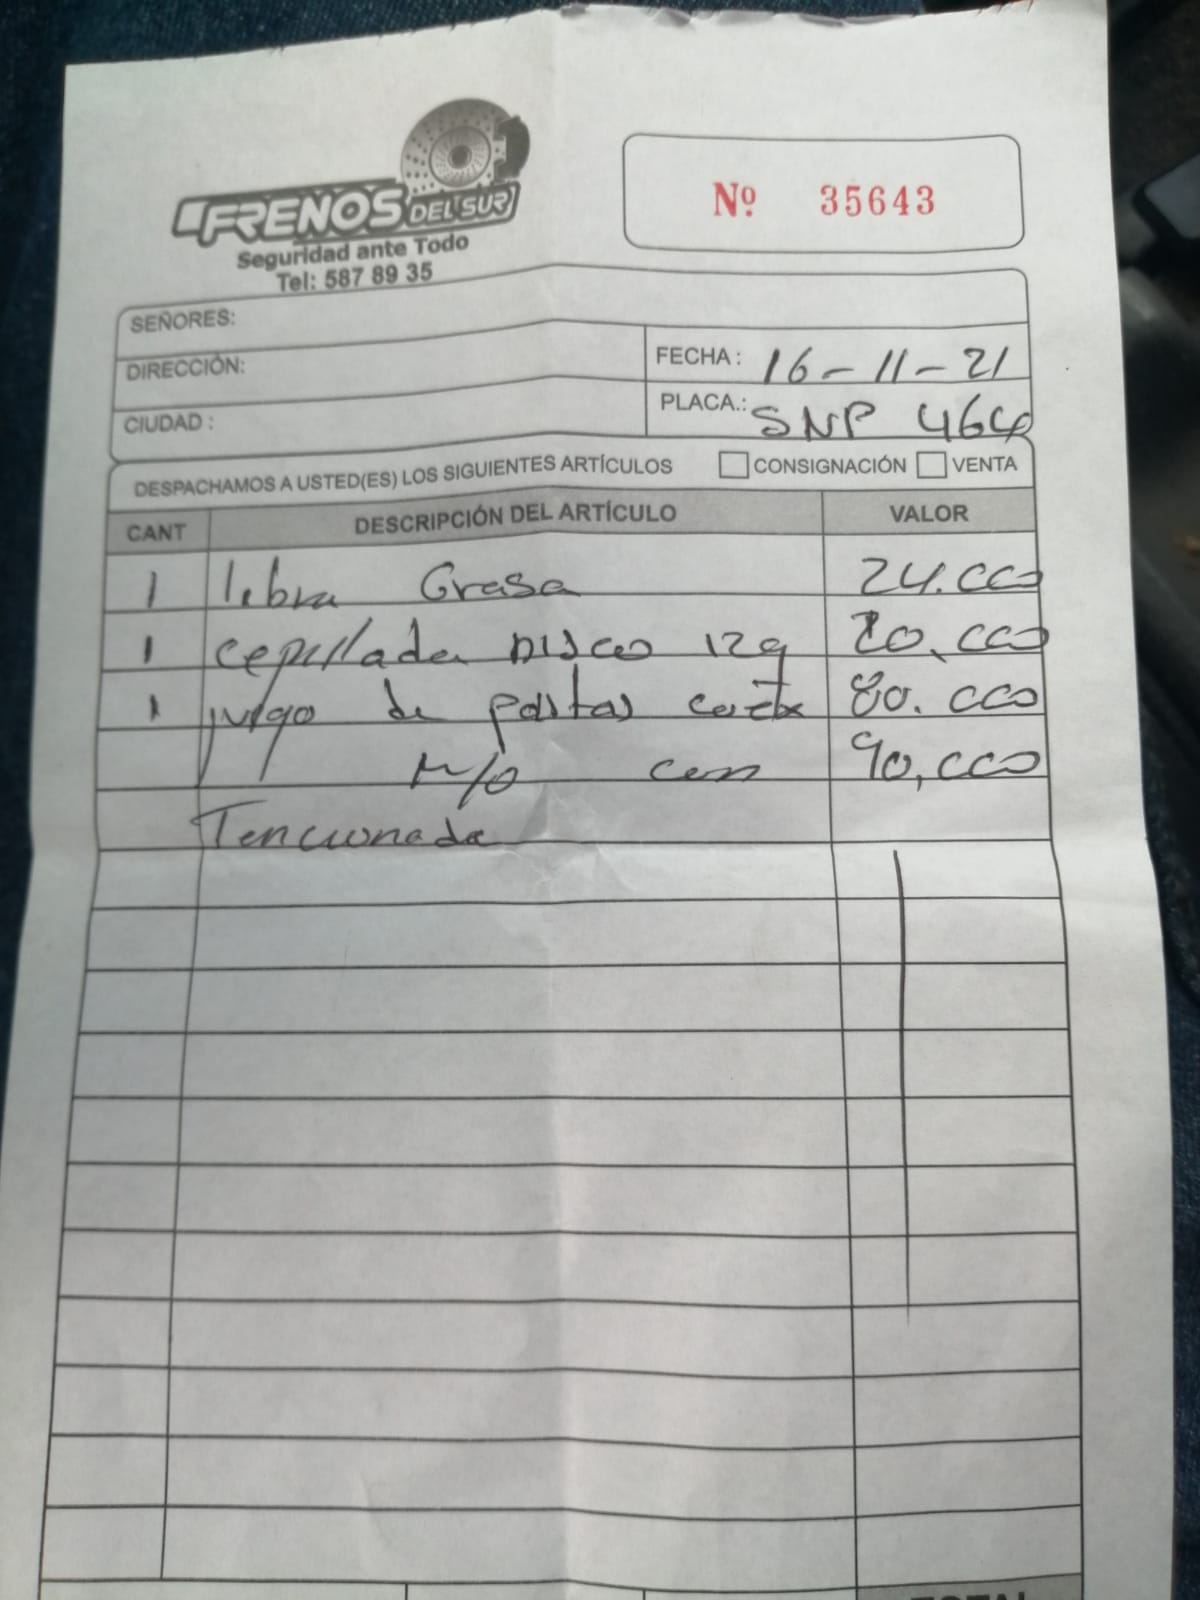 FRENOS DEL SUR
Seguridad ante Todo
Tel: 587 89 35
Nº 35643
SEÑORES:
DIRECCIÓN:
FECHA: 16-11-21
CIUDAD:
PLACA.: SNP 464
DESPACHAMOS A USTED(ES) LOS SIGUIENTES ARTÍCULOS CONSIGNACIÓN VENTA
CANT DESCRIPCIÓN DEL ARTÍCULO VALOR
1 libra Grasa 24.000
1 cepillada Disco 20.000
1 juego de pastas 80.000
M/O con 90,000
Tencionada
TOTAL